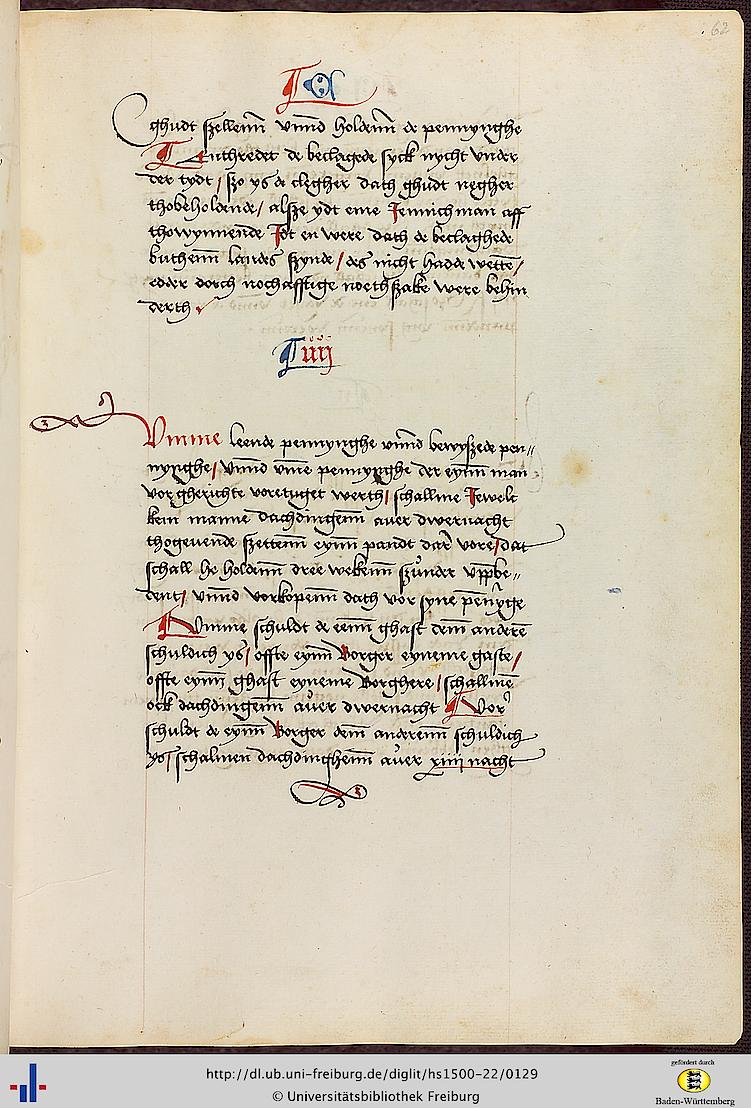 62
ghudt szellenn vnnd holdenn de pennynghe
Enthredet de beclagede syck nycht vnder
der tydt / szo ys de clegher dach ghudt negher
thobeholdende / alsze ydt eme Jennich man aff
thowynnende Idt en were dath de beclaghede
buthenn landes szynde / des nicht hadde wette /
edder dorch nochafftige noethszake were behin
derth
Vmme leende pennynghe vnnd bewyszede pen„
nynghe / vnnd vme pennynghe der eynn man
vorgherichte voretuget werth / schallme Jewelc
kem manne dachdingenn auer dwernacht
thogeuende szettenn eynn pandt dar vore / dat
schall he holdenn dree wekenn szunder vppbe„
dent / vnnd vorkopenn dath vor syne
Vmme schuldt de eenn ghast dem anderē
schuldich ys / offte eynn Borger eyneme gaste /
offte eynn ghast eyneme Borghere / schallmē
ock dachdingenn auer dwernacht Vor
schuldt de eynn Borger dem anderenn schuldich
ys / schalmen dachdinghenn auer xiiij nacht
http://dl.ub.uni-freiburg.de/diglit/hs1500-22/0129
© Universitätsbibliothek Freiburg
gefördert durch
Baden-Württemberg